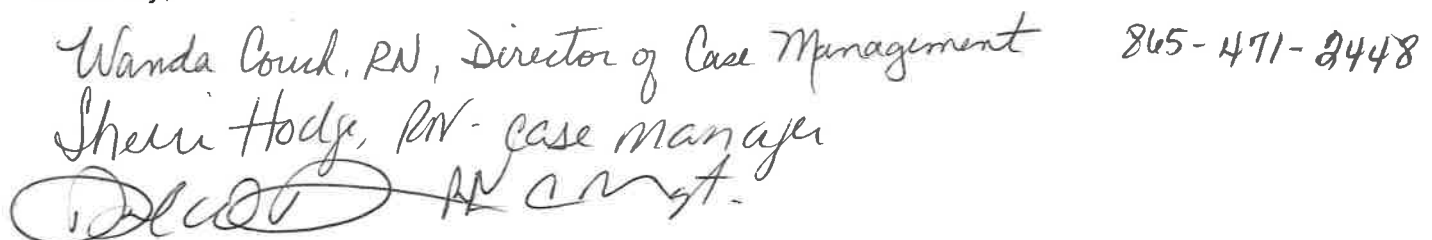 Wanda Couch, RN, Director of Case Management 865-471-2448
Sherri Hodge, RN - Case Manager
RN C Mngt.